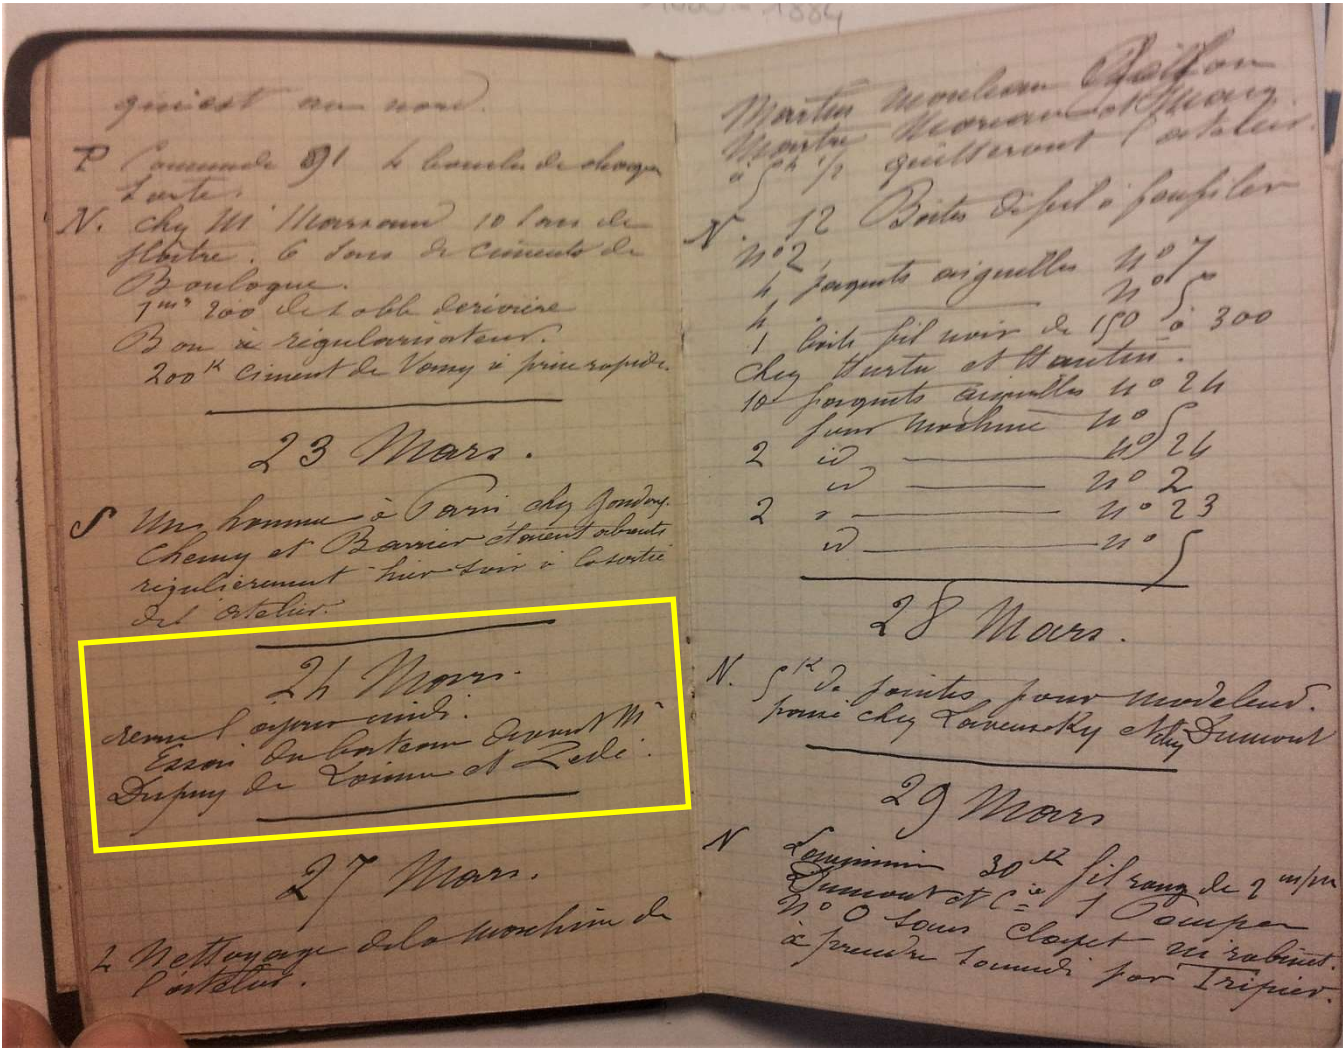 qui est au nord.
P Commande 91 4 boucles de chaque
sorte.
N. chez Mr 10 sacs de
plâtre. 6 sacs de ciments de
Boulogne.
1mc 200 de sable de rivière
Bau à régularisateur.
200K ciment de Vassy à prise rapide.
23 Mars.
S Un homme à Paris chez
Chemy et Barrier étaient absents
régulièrement hier soir à la sortie
de l'atelier.
24 Mars.
l'après midi.
Essai du bateau devant Mr
Dupuy de Lôme et Zédé.
27 Mars.
4 Nettoyage de la machine de
l'atelier.
1884
Martin
Martre Moreau et
à 5h 1/2 quitteront l'atelier.
N. 12 Boites de fil à faufiler
n°2.
4 paquets aiguilles n° 7
4 n° 5
1 boite fil noir de 150 à 300
chez Hurtu et Hautin.
10 paquets aiguilles n° 24
pour machine n° 5
2 id n° 24
id n° 2
2 " n° 23
id n° 5
28 Mars.
N. 5K de pointes pour modeleur.
chez et chez Dumont
29 Mars
N 30K fil rond de 2 m/m
Dumont et Cie 1 Pompe
n° 0 sans clapet ni robinet.
à prendre samedi par Tripier.